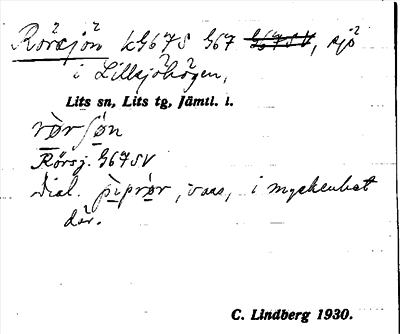 Rörsjön kG67S G67 G67SV, sjö
i Lillsjöhögen,
Lits sn, Lits tg, Jämtl. l.
rö̀r ʃön
Rörsj. G67SV
Dial. pìprör, vass, i myckenhet
där.
C. Lindberg 1930.